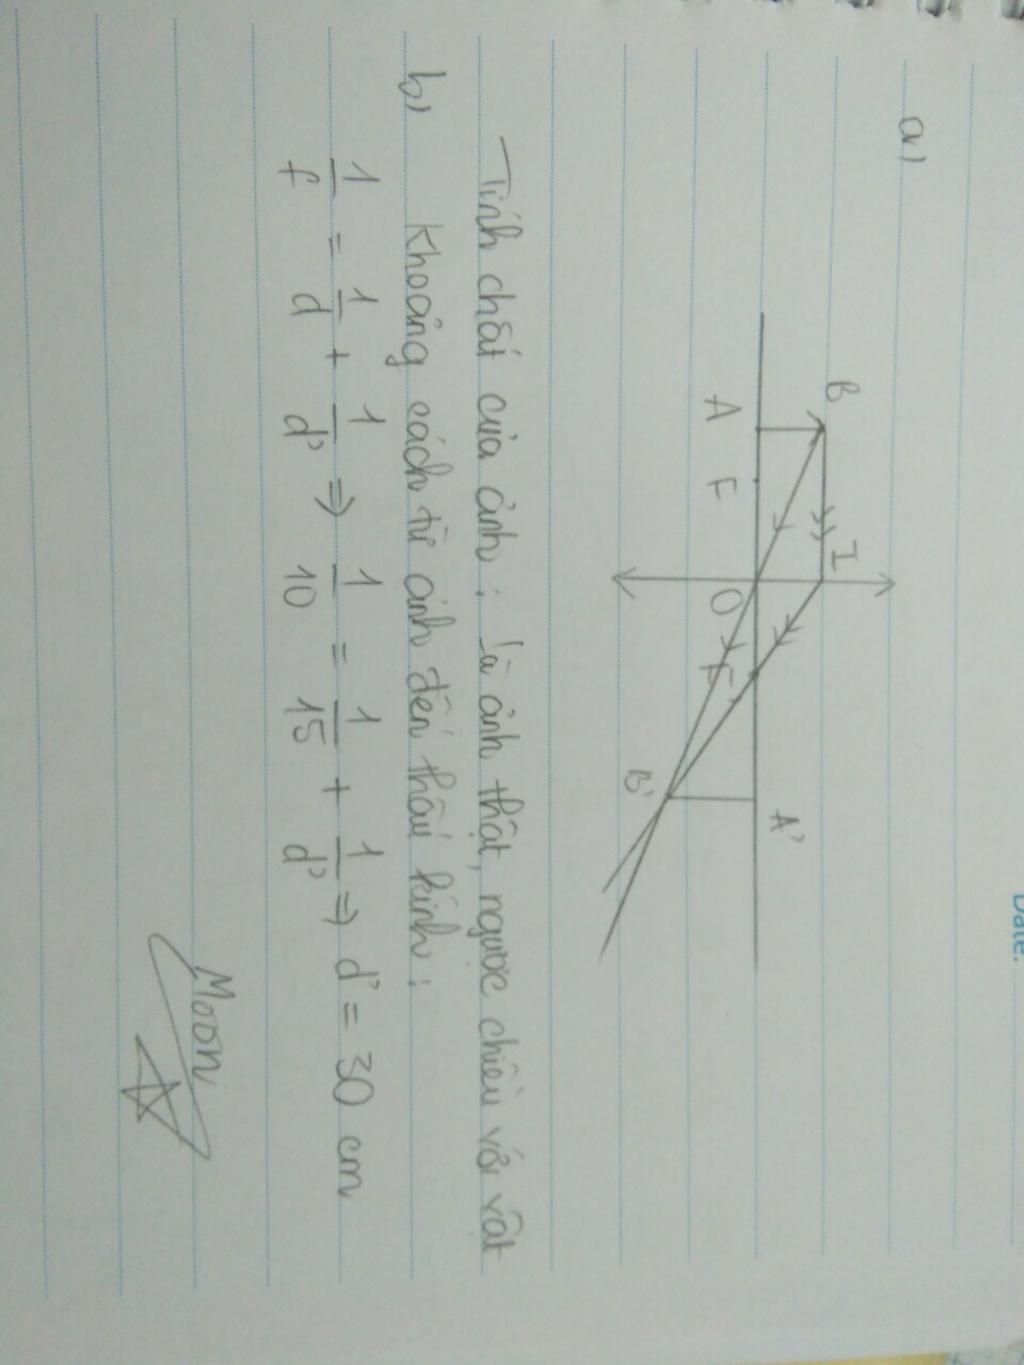 Date:
a)
B
I
A
F
O
F'
A'
B'
Tính chất của ảnh: là ảnh thật, ngược chiều với vật
b) Khoảng cách từ ảnh đến thấu kính:
1/f = 1/d + 1/d' ⇒ 1/10 = 1/15 + 1/d' ⇒ d' = 30 cm
Moon